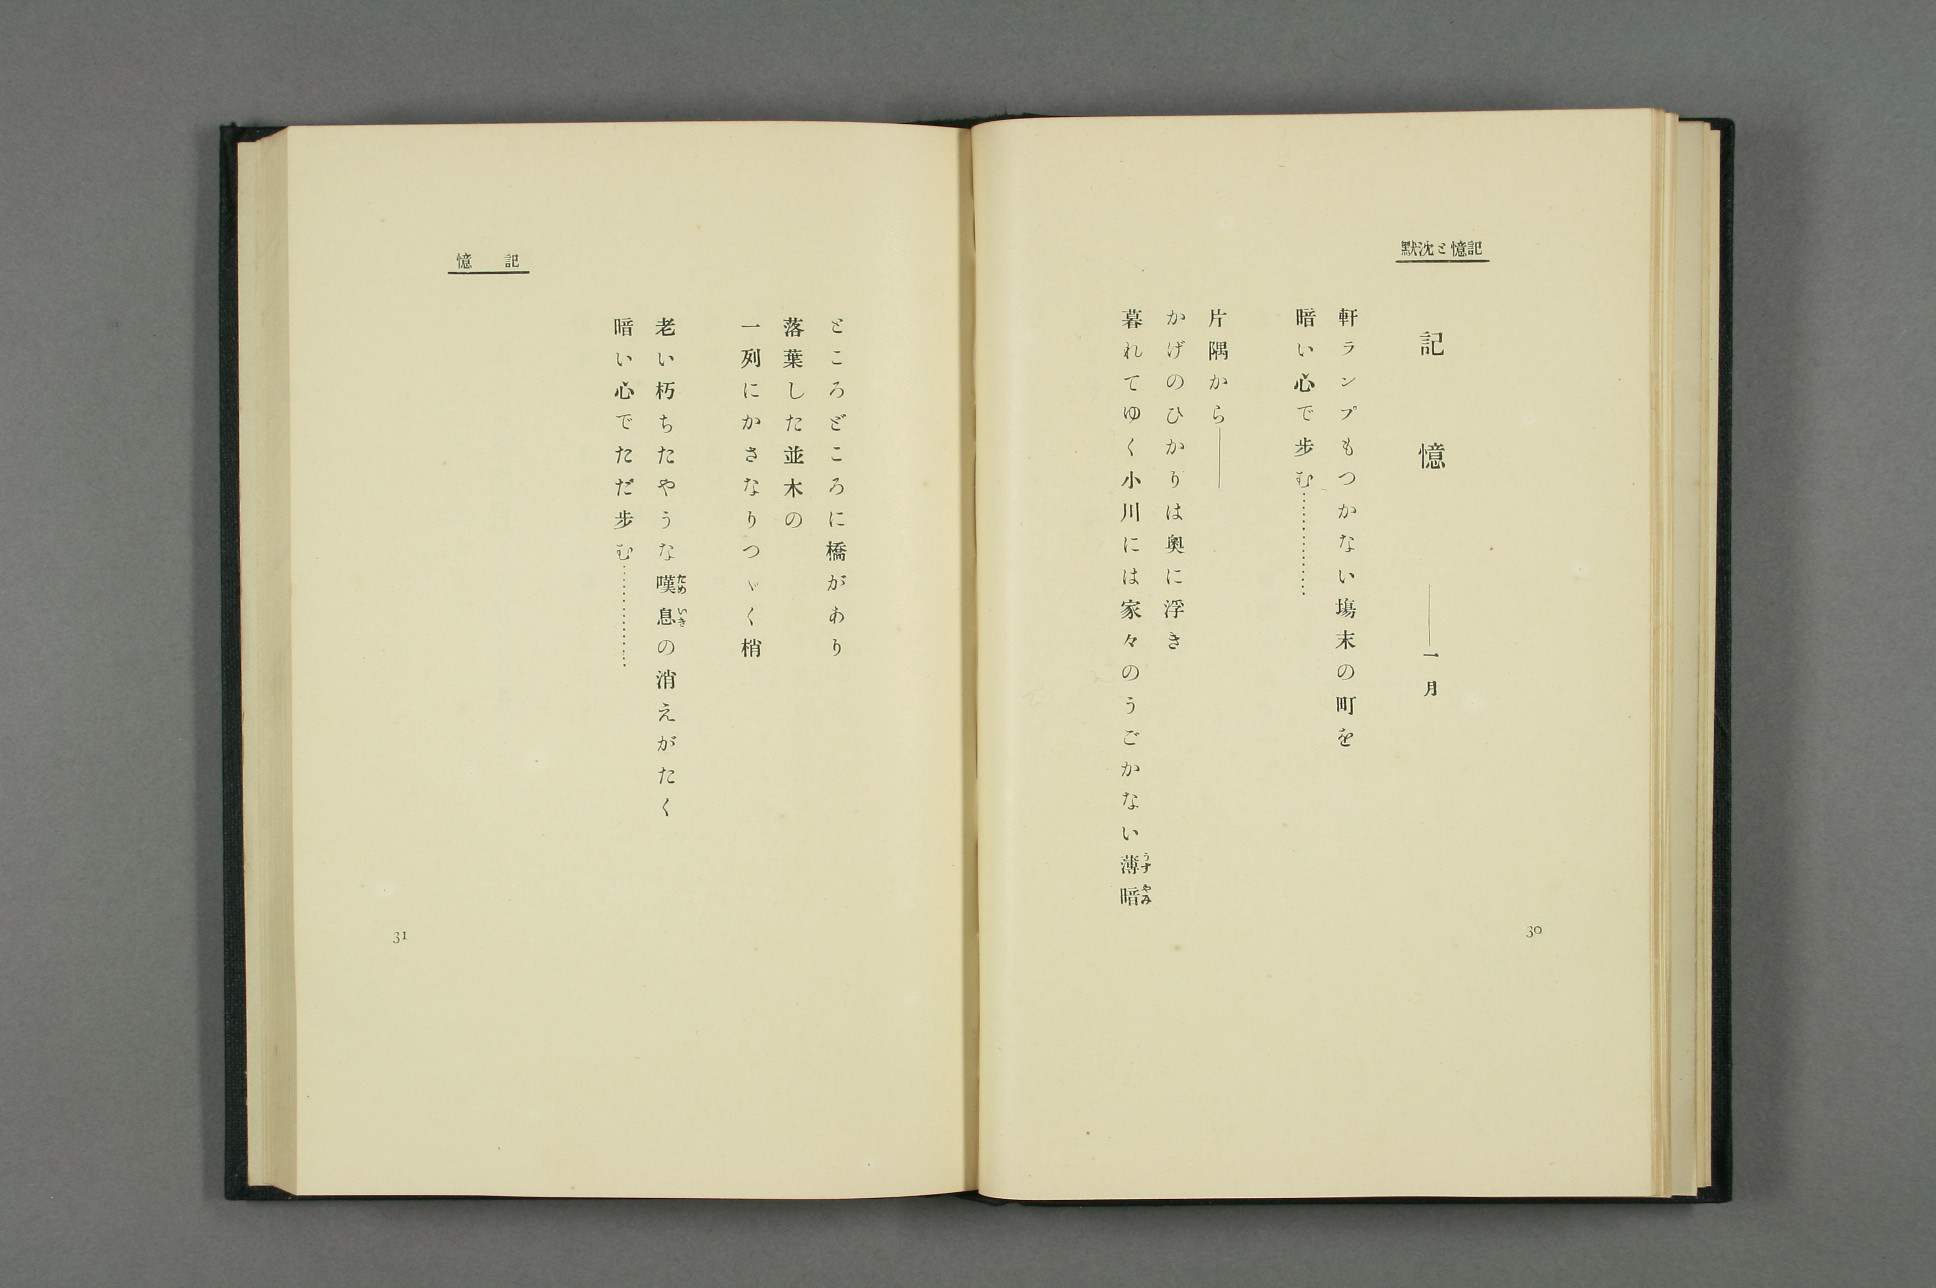 記憶と沈默
記憶 ――一月
軒ランプもつかない塲末の町を
暗い心で歩む………………
片隅から――
かげのひかりは奥に浮き
暮れてゆく小川には家々のうごかない薄暗
うすやみ
30
記憶
ところどころに橋があり
落葉した並木の
一列にかさなりつゞく梢
老い朽ちたやうな嘆息の消えがたく
ためいき
暗い心でただ歩む………………
31